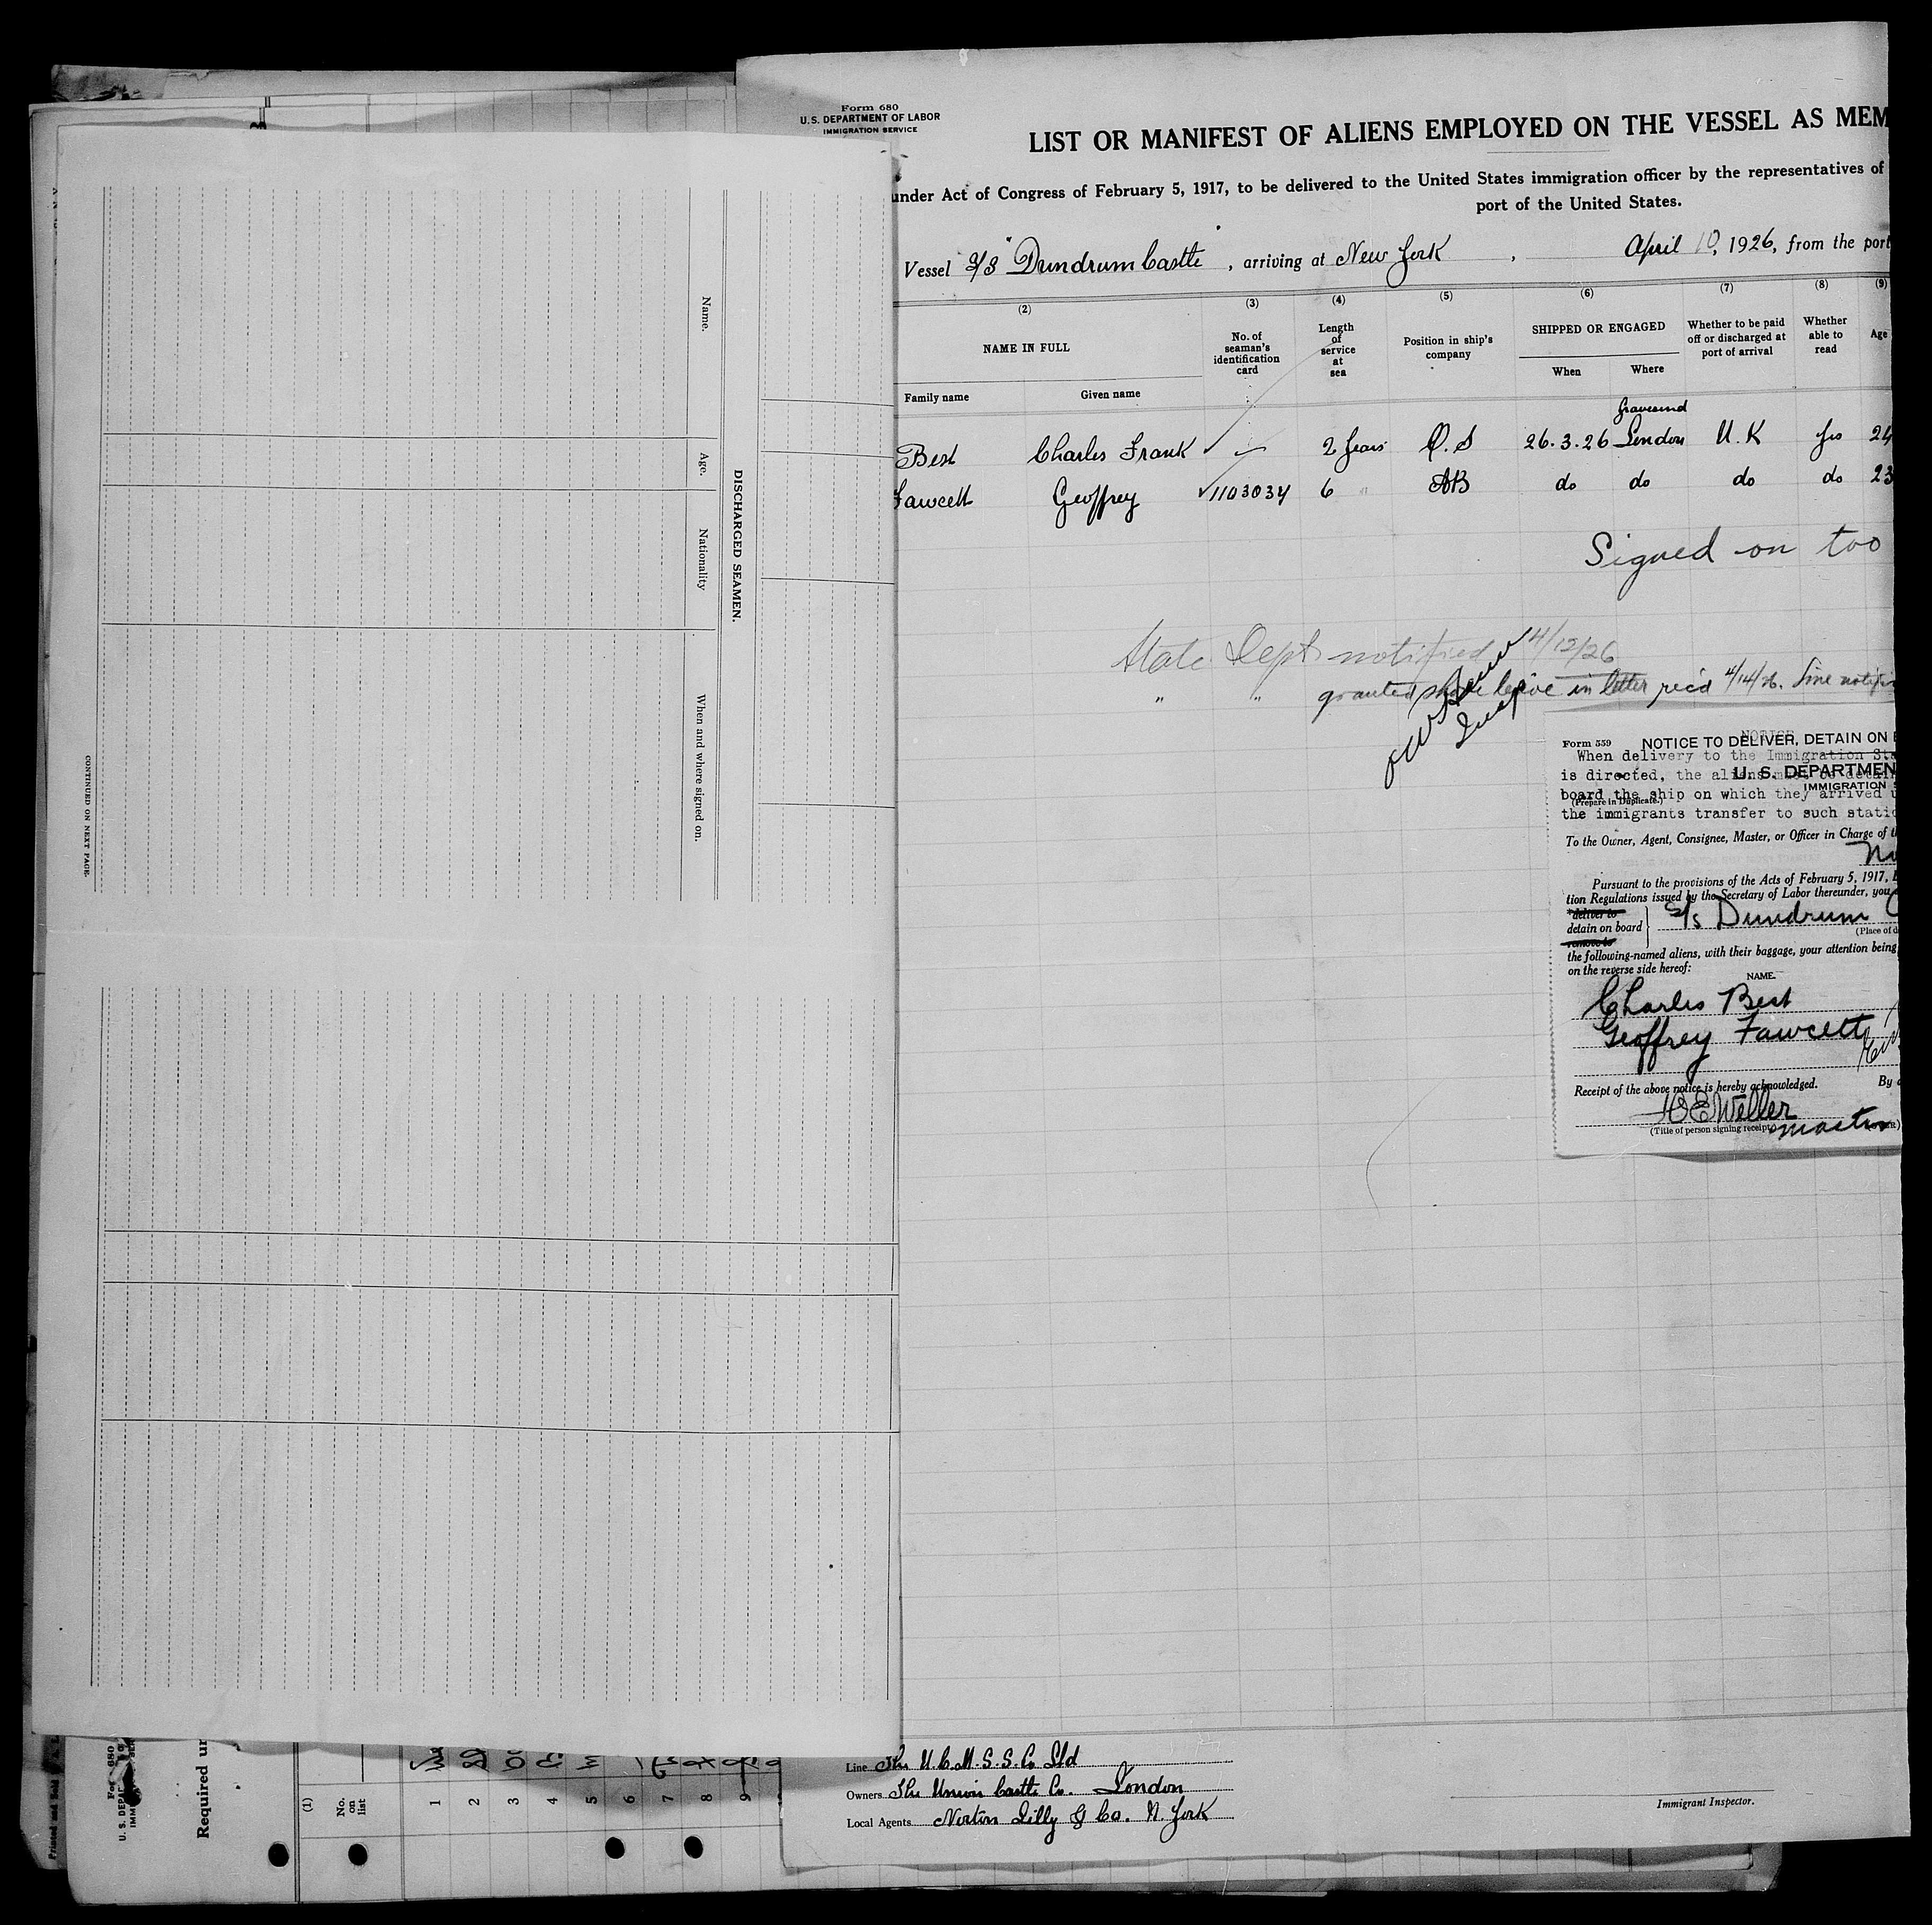 Form 680
U.S. DEPARTMENT OF LABOR
IMMIGRATION SERVICE
LIST OR MANIFEST OF ALIENS EMPLOYED ON THE VESSEL AS MEM
under Act of Congress of February 5, 1917, to be delivered to the United States immigration officer by the representatives of
port of the United States.
Vessel S/S "Dundrum Castle", arriving at New York, April 10, 1926, from the port
(2) (3) (4) (5) (6) (7) (8) (9)
NAME IN FULL
Family name Given name
No. of seaman's identification card
Length of service at sea
Position in ship's company
SHIPPED OR ENGAGED
When Where
Whether to be paid off or discharged at port of arrival
Whether able to read
Age
Gravesend
Best Charles Frank — 2 Years O.S 26.3.26 London U.K yes 24
Fawcett Geoffrey 1103034 6 " AB do do do do 23
Signed on too
State Dept notified 4/12/26
" " granted shore leave in letter rec'd 4/14/26. Line notified
Insp
Form 559 NOTICE TO DELIVER, DETAIN ON
NOTICE
When delivery to the Immigration Sta
U. S. DEPARTMEN
is directed, the aliens must be detain
IMMIGRATION
board the ship on which they arrived u
(Prepare in Duplicate.)
the immigrants transfer to such static
To the Owner, Agent, Consignee, Master, or Officer in Charge of t
Pursuant to the provisions of the Acts of February 5, 1917,
tion Regulations issued by the Secretary of Labor thereunder, you
*deliver to
detain on board S/s Dundrum C
remove to
(Place of d
the following-named aliens, with their baggage, your attention being
on the reverse side hereof:
NAME.
Charles Best
Geoffrey Fawcett
Receipt of the above notice is hereby acknowledged. By
H E Weller
(Title of person signing receipt.) master
Line The U.C.M.S.S.Co Ltd
Owners The Union Castle Co. London
Local Agents Norton Lilly & Co. N. York
Immigrant Inspector.
DISCHARGED SEAMEN.
Name. Age. Nationality When and where signed on.
CONTINUED ON NEXT PAGE.
Printed and Sold
680
U. S. DEPA
Required un
(1)
No. on list
1
2
3
4
5
6
7
8
9